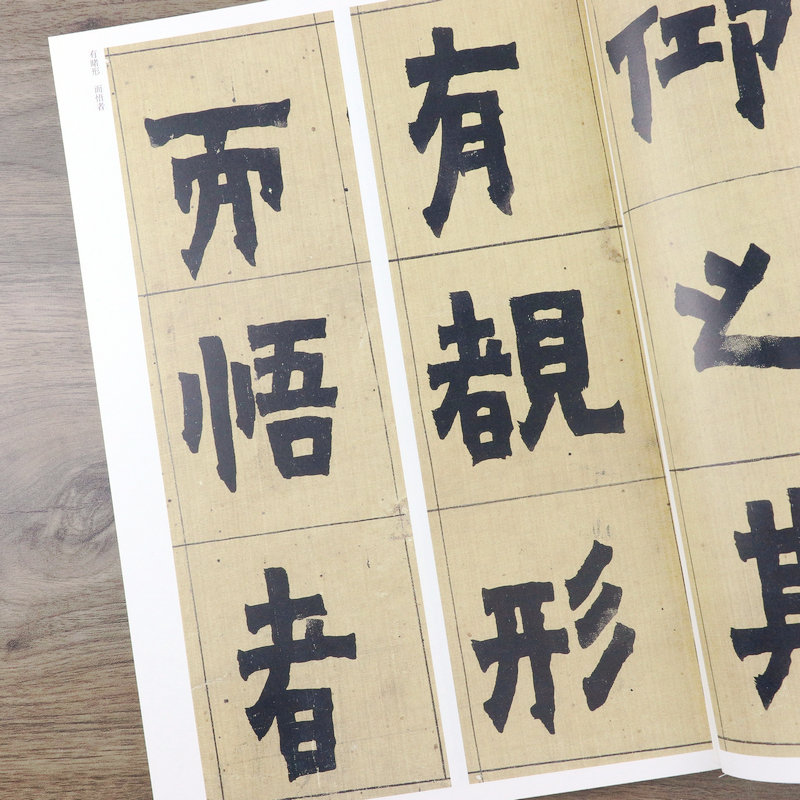 仰之其
有覩形
而悟者
有睹形 而悟者